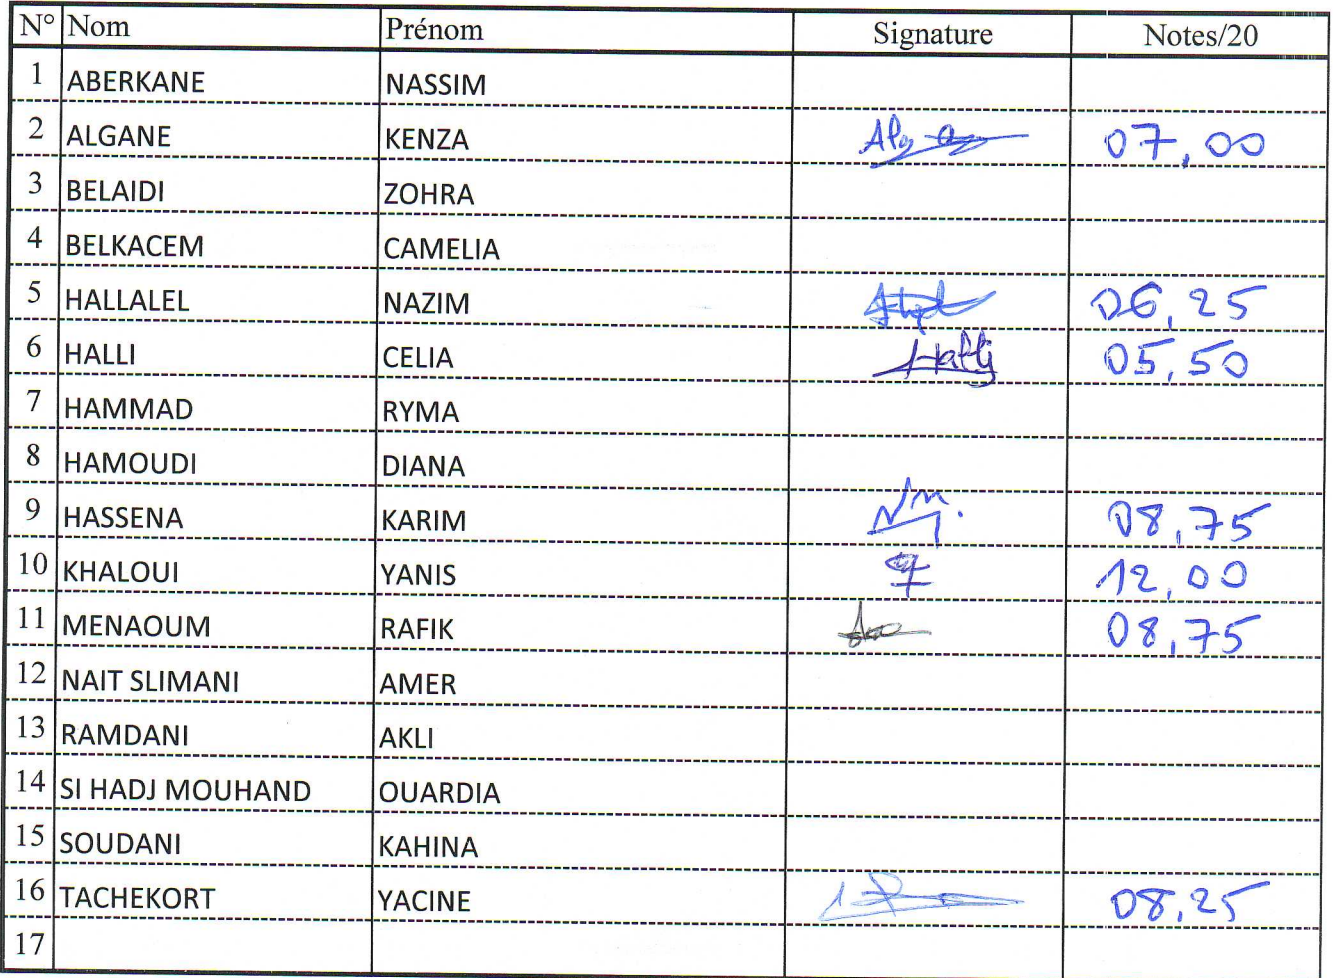 N° Nom Prénom Signature Notes/20
1 ABERKANE NASSIM
2 ALGANE KENZA 07,00
3 BELAIDI ZOHRA
4 BELKACEM CAMELIA
5 HALLALEL NAZIM 06,25
6 HALLI CELIA 05,50
7 HAMMAD RYMA
8 HAMOUDI DIANA
9 HASSENA KARIM 08,75
10 KHALOUI YANIS 12,00
11 MENAOUM RAFIK 08,75
12 NAIT SLIMANI AMER
13 RAMDANI AKLI
14 SI HADJ MOUHAND OUARDIA
15 SOUDANI KAHINA
16 TACHEKORT YACINE 08,25
17